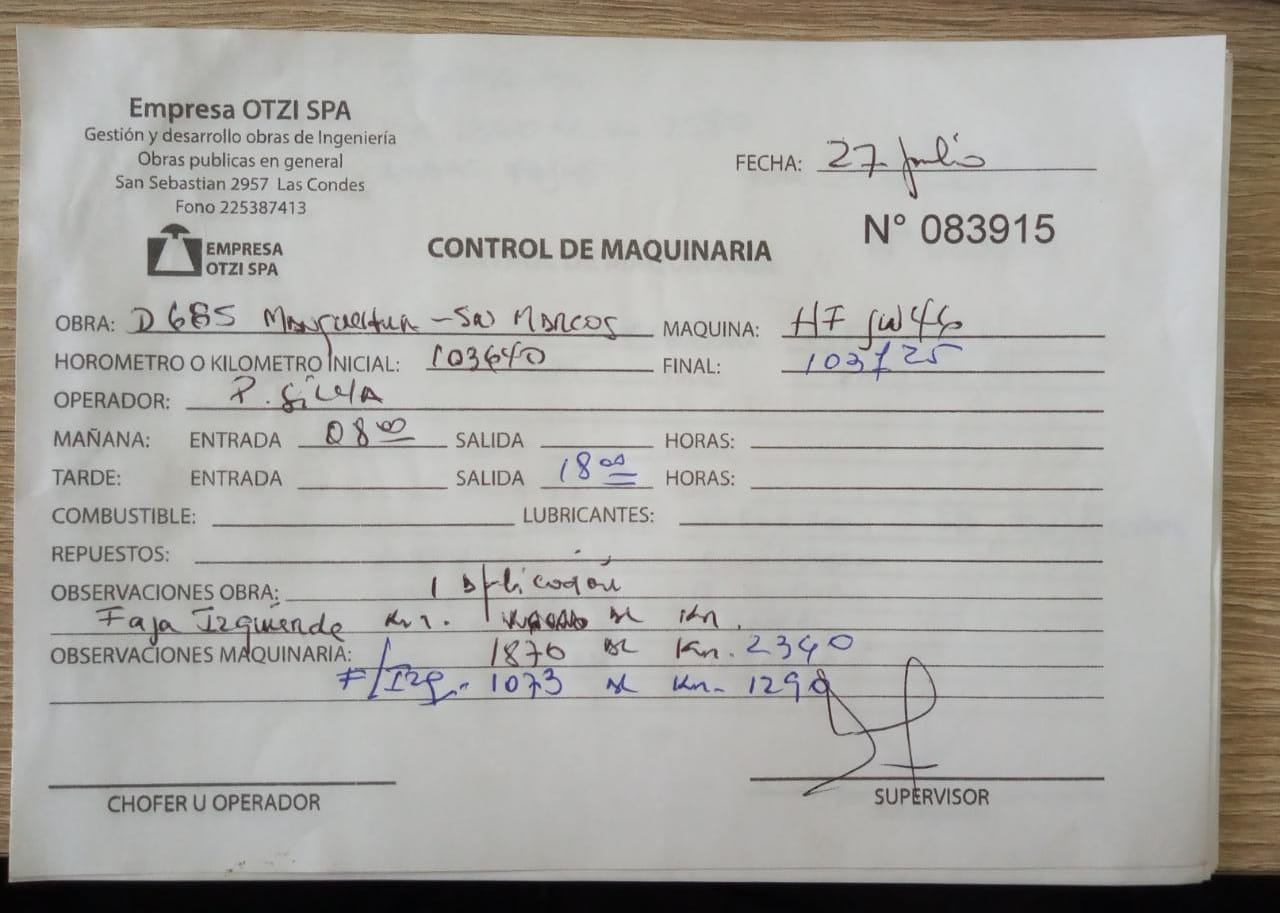 Empresa OTZI SPA
Gestión y desarrollo obras de Ingeniería
Obras publicas en general
San Sebastian 2957 Las Condes
Fono 225387413
EMPRESA
OTZI SPA
FECHA: 27 Julio
N° 083915
CONTROL DE MAQUINARIA
OBRA: D 685 - San Marcos MAQUINA: HF 46
HOROMETRO O KILOMETRO INICIAL: 103640 FINAL: 103725
OPERADOR: P. Silva
MAÑANA: ENTRADA 08 00 SALIDA HORAS:
TARDE: ENTRADA SALIDA 18 00 HORAS:
COMBUSTIBLE: LUBRICANTES:
REPUESTOS:
OBSERVACIONES OBRA: 1 Aplicación
Faja Izquierde Km.
OBSERVACIONES MAQUINARIA: 1870 al Km. 2340
F/Izq. 1073 al Km. 1290
CHOFER U OPERADOR
SUPERVISOR